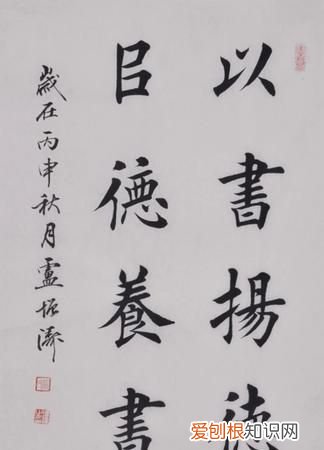 以書揚德
㠯德養書
歲在丙申秋月盧
爱刨根知识网